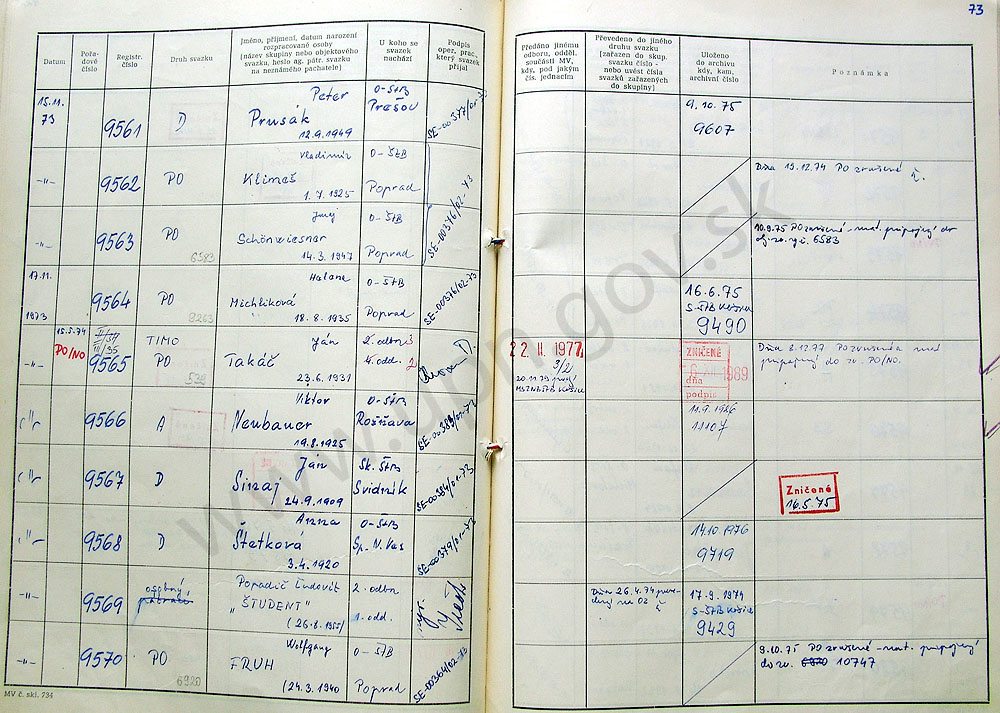 73
Datum
Pořadové číslo
Registr. číslo
Druh svazku
Jméno, příjmení, datum narození
rozpracované osoby
(název skupiny nebo objektového
svazku, heslo ag. pátr. svazku
na neznámého pachatele)
U koho se
svazek
nachází
Podpis
oper. prac.,
který svazek
přijal
Předáno jinému
odboru, odděl.
součásti MV,
kdy, pod jakým
čís. jednacím
Převedeno do jiného
druhu svazku
(zařazen do skup.
svazku číslo -
nebo uvést čísla
svazků zařazených
do skupiny)
Uloženo
do archivu
kdy, kam,
archivní číslo
Poznámka
15.11.
73
9561
D
Peter
Prusák
12.9.1949
O-ŠtB
Prešov
SE-00377/01-73
9.10.75
9607
-"-
9562
PO
Vladimír
Klimeš
1.7.1925
O-ŠtB
Poprad
SE-00376/02-73
Dňa 19.12.74 PO zrušené
-"-
9563
PO
6583
Juraj
Schönwiesner
14.3.1947
O-ŠtB
Poprad
10.9.75 PO zrušené - mat. pripojený do
6583
17.11.
1973
9564
PO
9263
Helena
Michliková
18.8.1935
O-ŠtB
Poprad
SE-00376/02-73
16.6.75
S-ŠtB Košice
9490
15.5.74
PO/NO
-"-
9565
TIMO
PO
Ján
Takáč
23.6.1931
2. odbor
4. odd. 2
22. II. 1977
3/21
20.11.79
ZNIČENÉ
dňa
1989
podpis
Dňa 8.12.77 PO zrušené a mat
pripojený do zv. PO/NO.
-"-
9566
A
Viktor
Neubauer
19.8.1925
O-ŠtB
Rožňava
SE-00383/01-73
11.9.1986
11107
-"-
9567
D
Ján
Sinaj
24.9.1909
Sk. ŠtB
Svidník
SE-00384/01-73
Zničené
16.5.75
-"-
9568
D
Anna
Štetková
3.4.1920
O-ŠtB
Sp. N. Ves
SE-00379/01-73
14.10.1976
9719
-"-
9569
osobný
Poradič Ľudovít
„ŠTUDENT"
(26.8.1955)
2. odbor
1. odd.
Dňa 26.4.74
17.9.1974
S-ŠtB Košice
9429
-"-
9570
PO
6920
Wolfgang
FRUH
(24.3.1940
O-ŠtB
Poprad
SE-00364/02-73
9.10.75 PO zrušené - mat. pripojený
do zv. 10747
MV č. skl. 734
www.upn.gov.sk